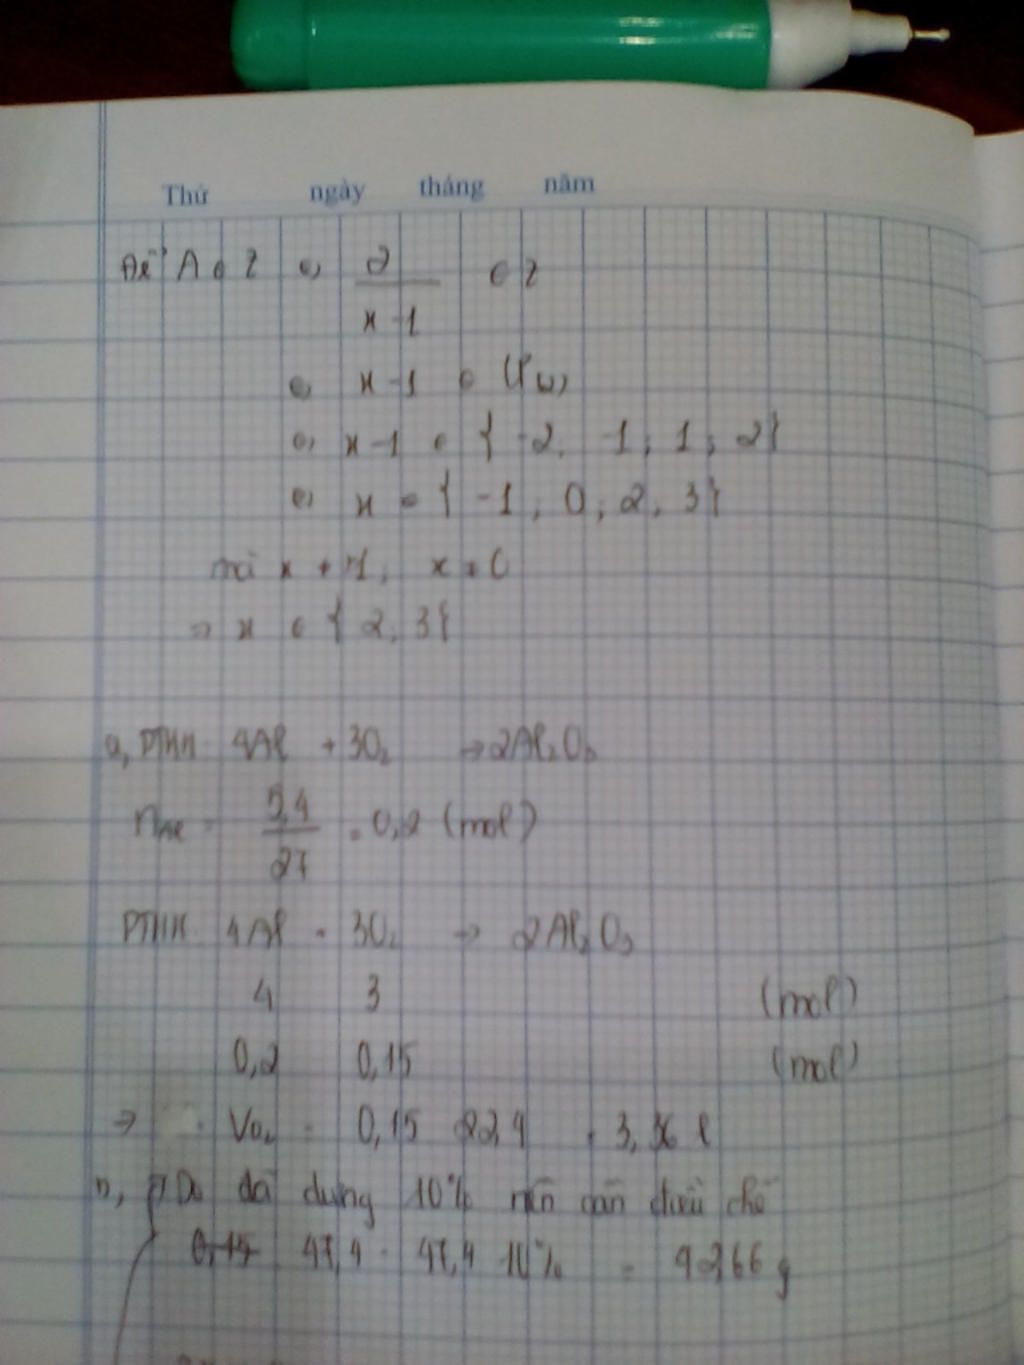 Thứ ngày tháng năm
Để A ∈ Z ⇔ 2/(x-1) ∈ Z
⇔ x-1 ∈ Ư(2)
⇔ x-1 ∈ { -2, -1; 1; 2}
⇔ x ∈ { -1; 0; 2; 3}
mà x ≠ -1, x ≠ 0
⇒ x ∈ { 2, 3}
a, PTHH 4Al + 3O₂ → 2Al₂O₃
nAl = 5,4/27 = 0,2 (mol)
PTHH 4Al + 3O₂ → 2Al₂O₃
4 3 (mol)
0,2 0,15 (mol)
→ VO₂ = 0,15 . 22,4 = 3,36 l
b, Do đã dùng 10% nên cần điều chế
47,4 - 47,4 . 10% = 42,66 g